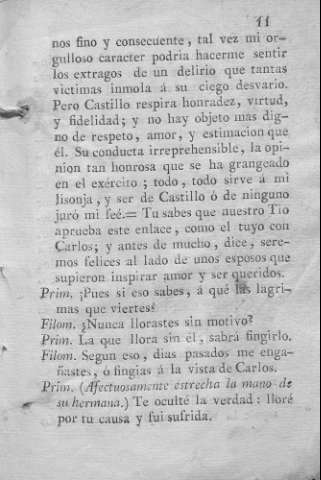 11
nos fino y consecuente, tal vez mi or-
gulloso caracter podria hacerme sentir
los extragos de un delirio que tantas
victimas inmola á su ciego desvario.
Pero Castillo respira honradez, virtud,
y fidelidad; y no hay objeto mas dig-
no de respeto, amor, y estimacion que
él. Su conducta irreprehensible, la opi-
nion tan honrosa que se ha grangeado
en el exército; todo, todo sirve á mi
lisonja, y ser de Castillo ó de ninguno
juró mi feé.= Tu sabes que nuestro Tio
aprueba este enlace, como el tuyo con
Carlos; y antes de mucho, dice, sere-
mos felices al lado de unos esposos que
supieron inspirar amor y ser queridos.
Prim. ¡Pues si eso sabes, á qué las lagri-
mas que viertes?
Filom. ¿Nunca llorastes sin motivo?
Prim. La que llora sin él, sabrá fingirlo.
Filom. Segun eso, dias pasados me enga-
ñastes, ó fingias á la vista de Carlos.
Prim. (Afectuosamente estrecha la mano de
su hermana.) Te oculté la verdad: lloré
por tu causa y fui sufrida.